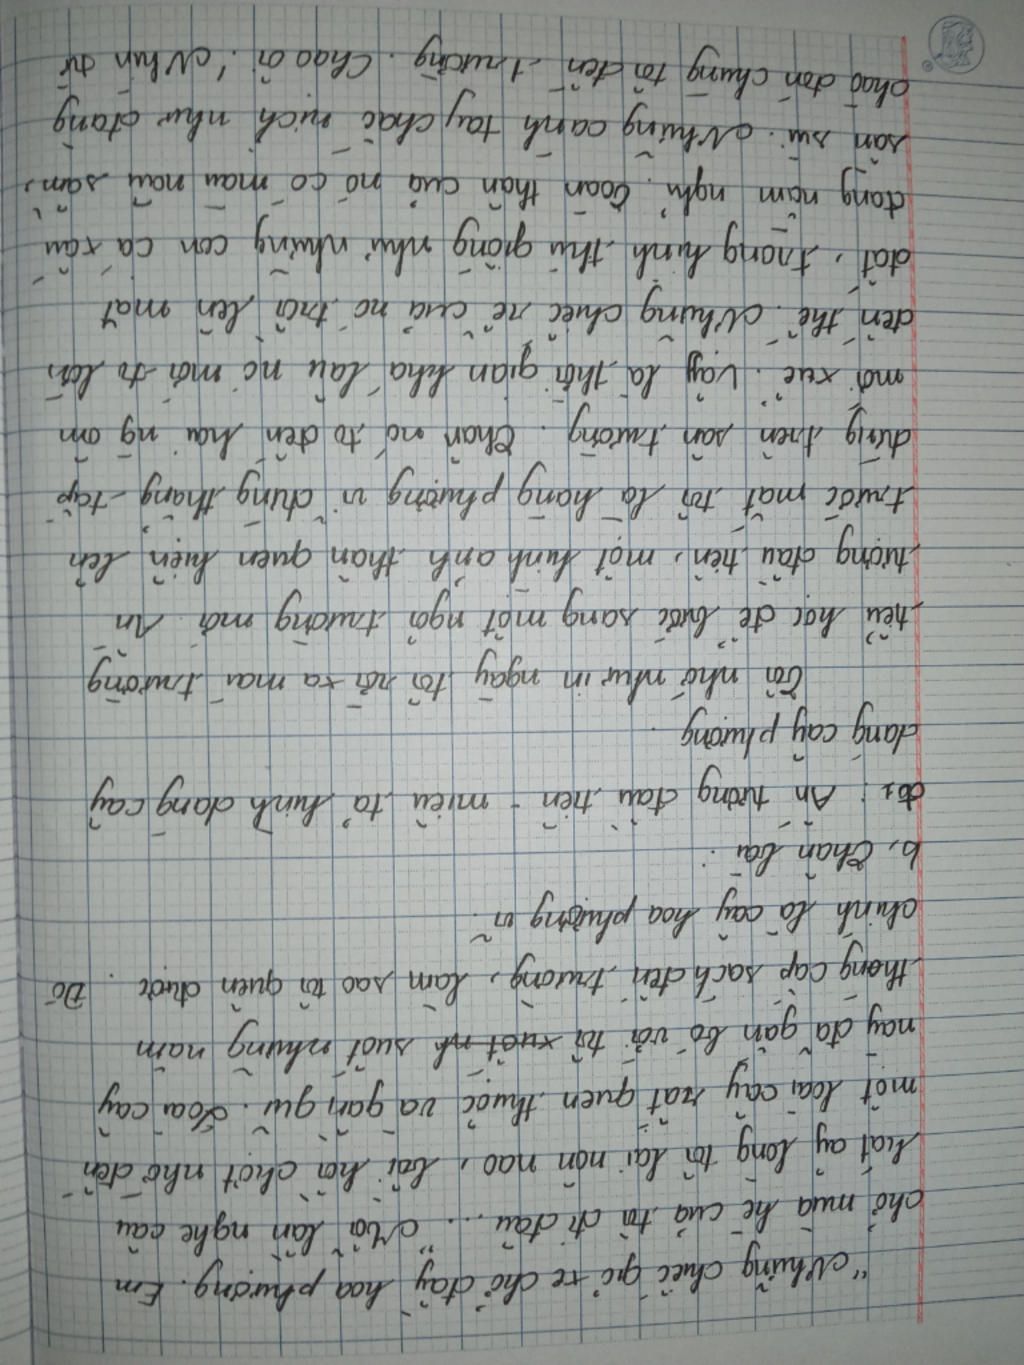 "Những chiếc giỏ xe chở đầy hoa phượng. Em
chở mùa hè của tôi đi đâu... " Mỗi lần nghe câu
hát ấy lòng tôi lại nôn nao, bồi hồi chợt nhớ đến
một loài cây rất quen thuộc và gần gũi. Loài cây
này đã gắn bó với tôi xuốt nh suốt những năm
tháng cắp sách đến trường, làm sao tôi quên được. Đó
chính là cây hoa phượng vĩ.
b, Thân bài:
Ấn tượng đầu tiên - miêu tả hình dáng cây
dáng cây phượng.
Tôi nhớ như in ngày tôi rời xa mái trường
tiểu học để bước sang một ngôi trường mới. Ấn
tượng đầu tiên, một hình ảnh thân quen hiện lên
trước mắt tôi là hàng phượng vĩ đứng thẳng tắp
đứng trên sân trường. Thân nó to đến hai ng ôm
mới xuể. Vậy là thời gian khá lâu nó mới to lớn
đến thế. Những chiếc rễ của nó trồi lên mặt
đất, trong hình thù giống như những con cá xấu
đang nằm nghỉ. Toàn thân của nó có màu nâu sẫm,
sần sùi. Những cành tay chắc nịch như đang
chào đón chúng tôi đến trường. Chao ôi! Nhìn từ